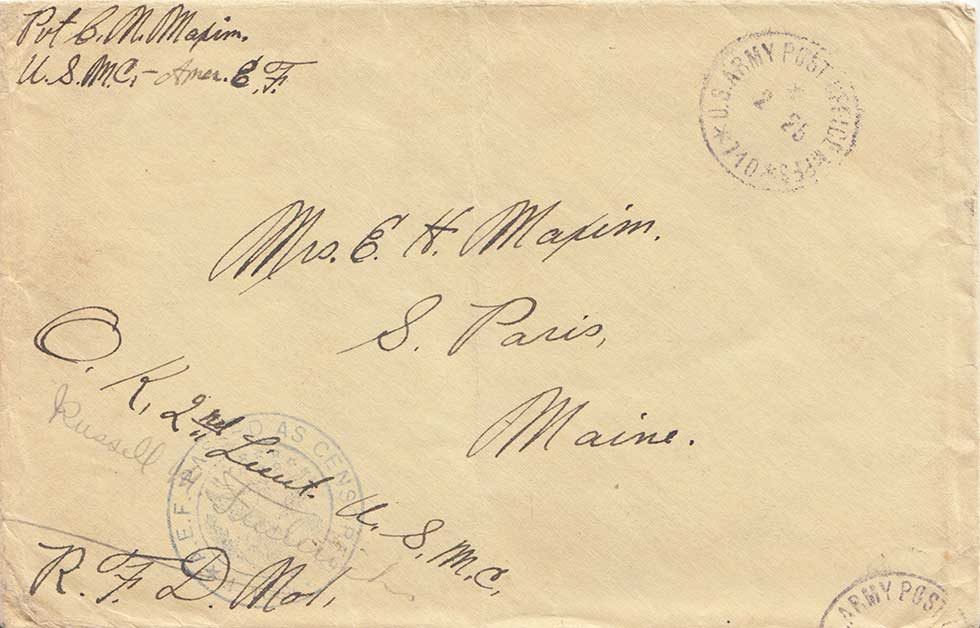 Pvt C. N. Maxim.
U.S.M.C. - Amer. E.F.
★ U.S. ARMY POST OFFICE MPES ★ 710
2 ★
25
Mrs. E. H. Maxim.
S. Paris,
Maine.
O. K. 2nd Lieut. U.S.M.C.
Russell
A.E.F. PASSED AS CENSORED
R. F. D. No 1,
ARMY POST